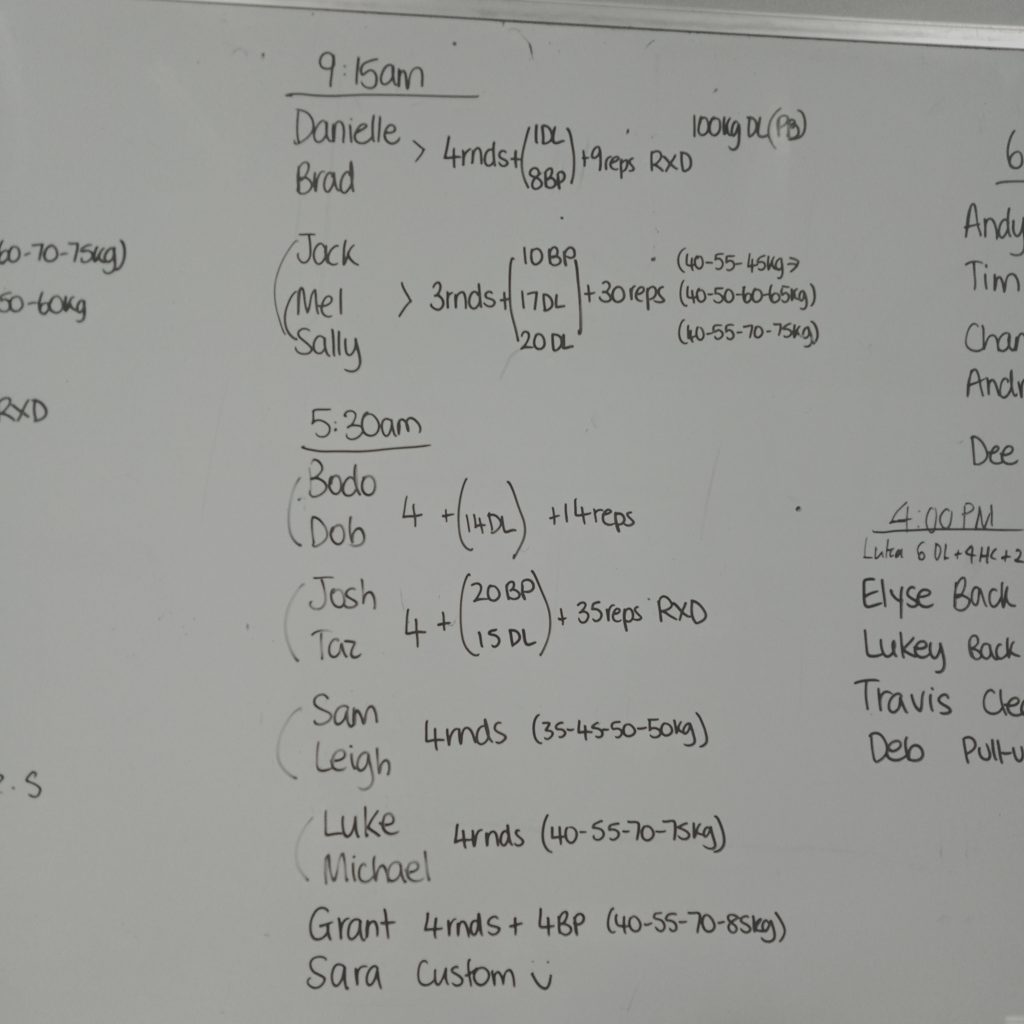 60-70-75kg)
50-60kg
RXD
S
9:15am
Danielle
Brad
> 4rnds+(1DL 8BP)+9reps RXD
100kg DL(PB)
Jack
Mel
Sally
> 3rnds+(10BP 17DL 20DL)+30reps
(40-55-45kg→
(40-50-60-65kg)
(40-55-70-75kg)
5:30am
Bodo
Dob
4 +(14DL) +14reps
Josh
Taz
4 + (20BP 15DL) + 35reps RXD
Sam
Leigh
4rnds (35-45-50-50kg)
Luke
Michael
4rnds (40-55-70-75kg)
Grant 4rnds + 4BP (40-55-70-85kg)
Sara Custom
6
Andy
Tim
Dee
4:00 PM
6 DL+4HC+2
Elyse Back
Lukey Back
Travis
Deb